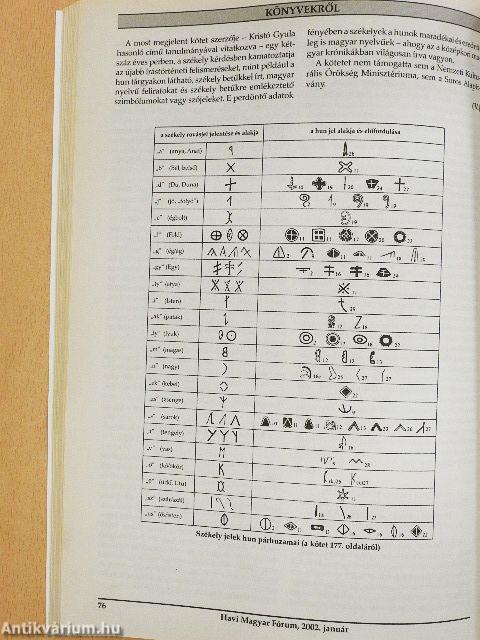 KÖNYVEKRŐL
A most megjelent kötet szerzője – Kristó Gyula
hasonló című tanulmányával vitatkozva – egy két-
száz éves perben, a székely kérdésben kamatoztatja
az újabb írástörténeti felismeréseket, mint például a
hun tárgyakon látható, székely betűkkel írt, magyar
nyelvű feliratokat és székely betűkre emlékeztető
szimbólumokat vagy szójeleket. E perdöntő adatok
fényében a székelyek a hunok maradékai és eredeti-
leg is magyar nyelvűek – ahogy az a középkori ma-
gyar krónikákban világosan írva vagyon.
A kötetet nem támogatta sem a Nemzeti Kultu-
rális Örökség Minisztériuma, sem a Soros Alapít-
vány.
a székely rovásjel jelentése és alakja
a hun jel alakja és előfordulása
„a" (anya, Anat)
„b" (Bél, belső)
„d" (Du, Duna)
„j" (jó, „folyó")
(égbolt)
„f" (Föld)
„g" (égág)
„gy" (Egy)
„ty" (atya)
(Isten)
(patak)
„ly" (lyuk)
„m" (magas)
„n" (nagy)
(kebel)
„s" (sarok)
„t" (tengely)
„v" (vas)
„ö" (kőkökör)
„ü" (ürkő, Uru)
„sz" (szár/szél)
(ősisten)
Székely jelek hun párhuzamai (a kötet 177. oldaláról)
76
Havi Magyar Fórum, 2002. január
Antikvárium.hu